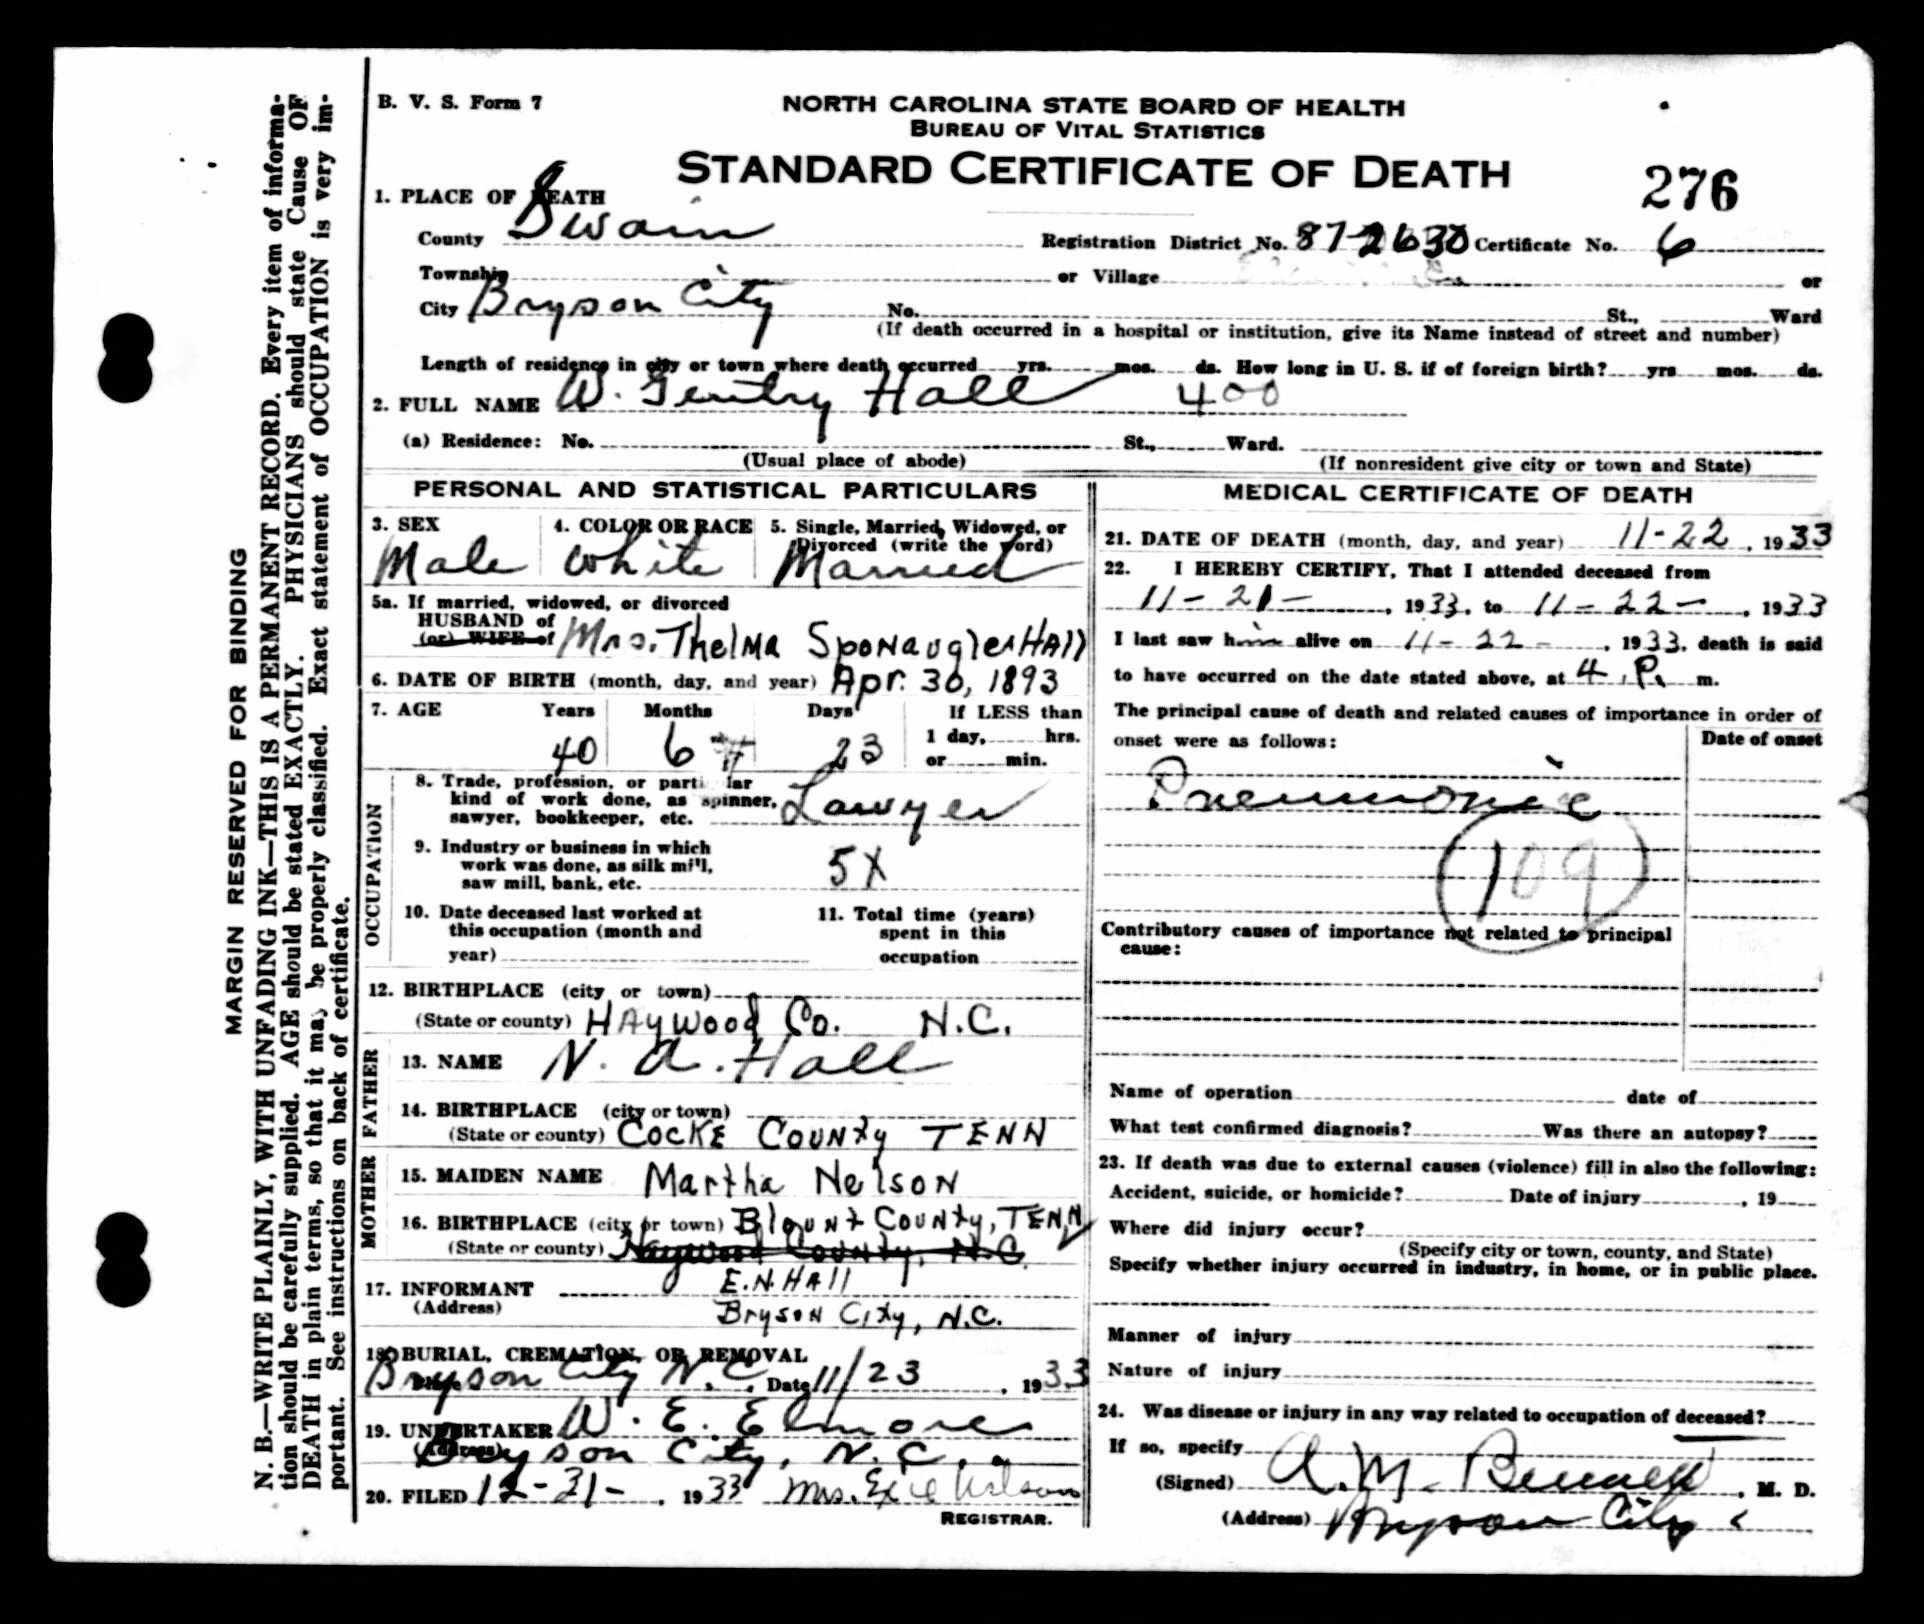 B. V. S. Form 7
NORTH CAROLINA STATE BOARD OF HEALTH
BUREAU OF VITAL STATISTICS
STANDARD CERTIFICATE OF DEATH
276
1. PLACE OF DEATH
County Swain Registration District No. 87-2630 Certificate No. 6
Township or Village or
City Bryson City No. St., Ward
(If death occurred in a hospital or institution, give its Name instead of street and number)
Length of residence in city or town where death occurred yrs. mos. ds. How long in U. S. if of foreign birth? yrs mos. ds.
2. FULL NAME W. Gentry Hall 400
(a) Residence: No. St., Ward.
(Usual place of abode) (If nonresident give city or town and State)
PERSONAL AND STATISTICAL PARTICULARS
3. SEX 4. COLOR OR RACE 5. Single, Married, Widowed, or
Divorced (write the word)
Male White Married
5a. If married, widowed, or divorced
HUSBAND of
(or) WIFE of Mrs. Thelma Sponaugler Hall
6. DATE OF BIRTH (month, day, and year) Apr. 30, 1893
7. AGE Years Months Days If LESS than
1 day, hrs.
or min.
40 6 23
OCCUPATION
8. Trade, profession, or particular
kind of work done, as spinner,
sawyer, bookkeeper, etc. Lawyer
9. Industry or business in which
work was done, as silk mill,
saw mill, bank, etc. 5X
10. Date deceased last worked at
this occupation (month and
year)
11. Total time (years)
spent in this
occupation
12. BIRTHPLACE (city or town)
(State or county) Haywood Co. N.C.
FATHER
13. NAME N. A. Hall
14. BIRTHPLACE (city or town)
(State or county) Cocke County TENN
MOTHER
15. MAIDEN NAME Martha Nelson
16. BIRTHPLACE (city or town) Blount County, TENN
(State or county) Haywood County, N.C.
17. INFORMANT E.N. Hall
(Address) Bryson City, N.C.
18. BURIAL, CREMATION, OR REMOVAL
Bryson City N.C. Date 11/23, 1933
19. UNDERTAKER W. E. Elmore
(Address) Bryson City, N.C.
20. FILED 12-31-, 1933 Mrs. Exie Wilson
REGISTRAR.
MEDICAL CERTIFICATE OF DEATH
21. DATE OF DEATH (month, day, and year) 11-22, 1933
22. I HEREBY CERTIFY, That I attended deceased from
11-21-, 1933, to 11-22-, 1933
I last saw him alive on 11-22-, 1933, death is said
to have occurred on the date stated above, at 4 P. m.
The principal cause of death and related causes of importance in order of
onset were as follows: Date of onset
Pneumonia
109
Contributory causes of importance not related to principal
cause:
Name of operation date of
What test confirmed diagnosis? Was there an autopsy?
23. If death was due to external causes (violence) fill in also the following:
Accident, suicide, or homicide? Date of injury, 19
Where did injury occur?
(Specify city or town, county, and State)
Specify whether injury occurred in industry, in home, or in public place.
Manner of injury
Nature of injury
24. Was disease or injury in any way related to occupation of deceased?
If so, specify
(Signed) A. M. Bennett, M. D.
(Address) Bryson City
MARGIN RESERVED FOR BINDING
N. B.—WRITE PLAINLY, WITH UNFADING INK—THIS IS A PERMANENT RECORD. Every item of informa-
tion should be carefully supplied. AGE should be stated EXACTLY. PHYSICIANS should state Cause OF
DEATH in plain terms, so that it may be properly classified. Exact statement of OCCUPATION is very im-
portant. See instructions on back of certificate.